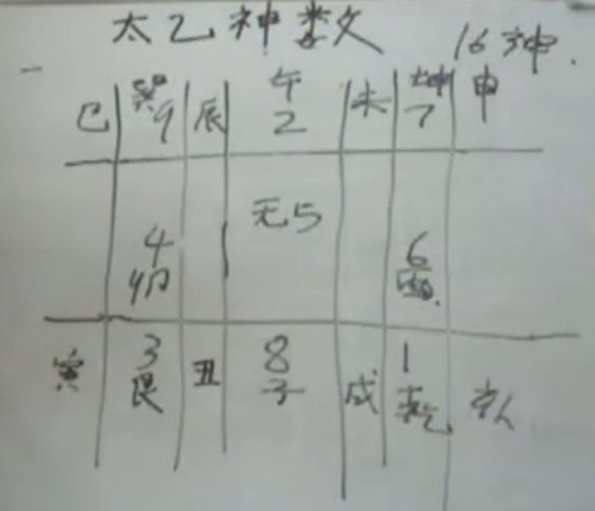 太乙神数文
16神.
巳 巽9 辰 午2 未 坤7 申
无5
4卯 6酉
寅 3艮 丑 8子 戌 1乾 亥